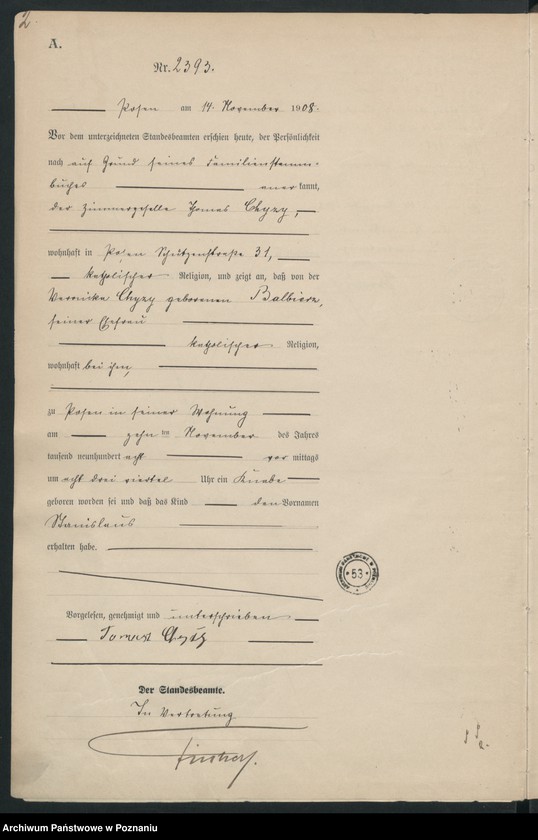 2
A.
Nr. 2393.
Posen am 14. November 1908.
Vor dem unterzeichneten Standesbeamten erschien heute, der Persönlichkeit
nach auf Grund seines Familienstamm-
buches anerkannt,
der Zimmergeselle Thomas Chyzy,
wohnhaft in Posen Schützenstraße 31,
katholischer Religion, und zeigt an, daß von der
Veronika Chyzy geborenen Balbierz,
seiner Ehefrau
katholischer Religion,
wohnhaft bei ihm,
zu Posen in seiner Wohnung
am zehnten November des Jahres
tausend neunhundert acht vormittags
um acht drei viertel Uhr ein Knabe
geboren worden sei und daß das Kind den Vornamen
Stanislaus
erhalten habe.
53
Vorgelesen, genehmigt und unterschrieben
Tomasz
Der Standesbeamte.
In Vertretung
Archiwum Państwowe w Poznaniu